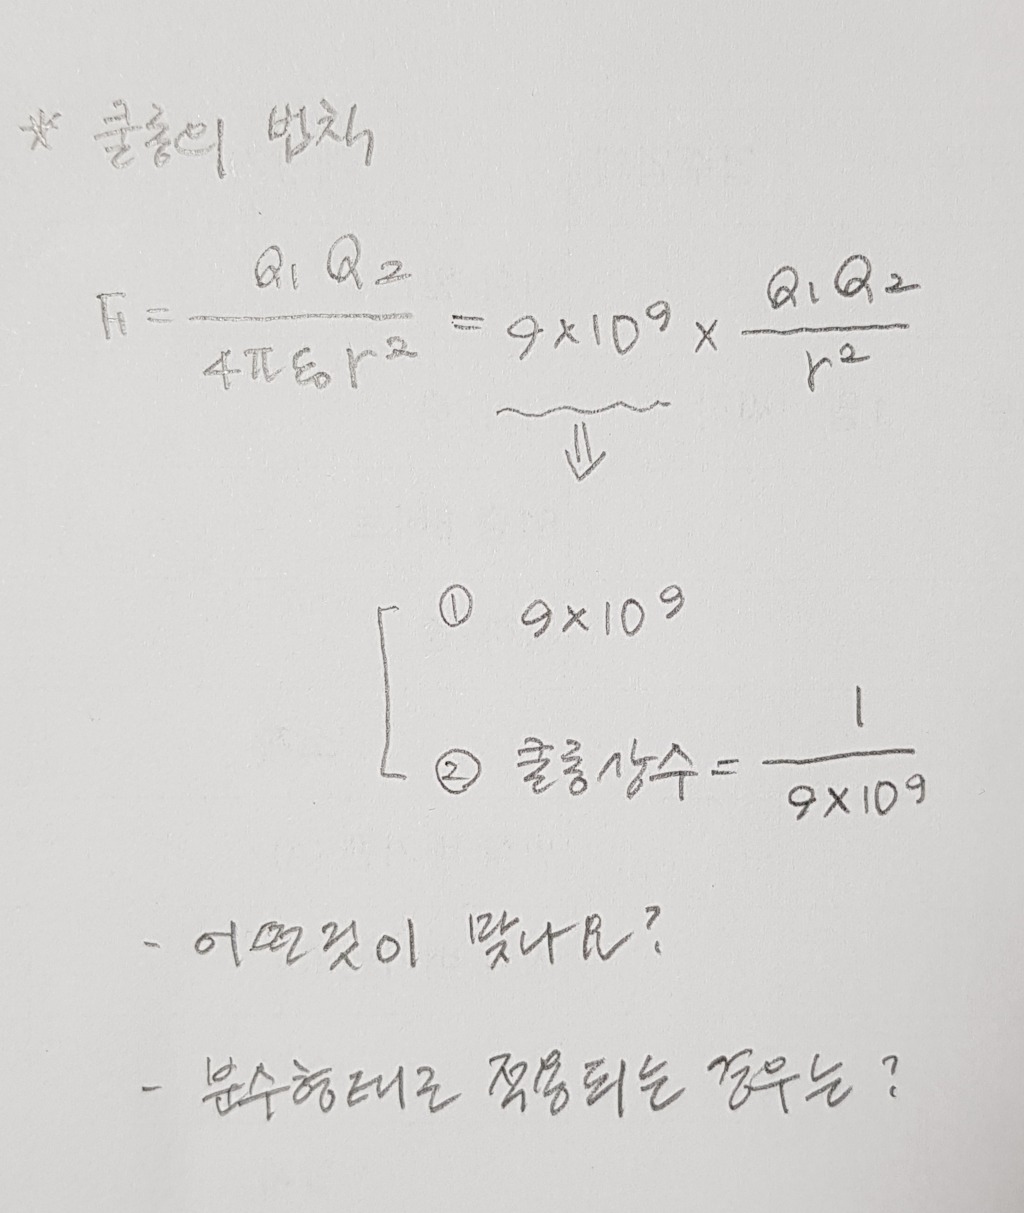 * 쿨롱의 법칙
F = Q₁ Q₂ / 4π ε₀ r² = 9×10⁹ × Q₁ Q₂ / r²
⇓
① 9×10⁹
② 쿨롱상수 = 1 / 9×10⁹
- 어떤것이 맞나요?
- 분수형태로 적용되는 경우는?